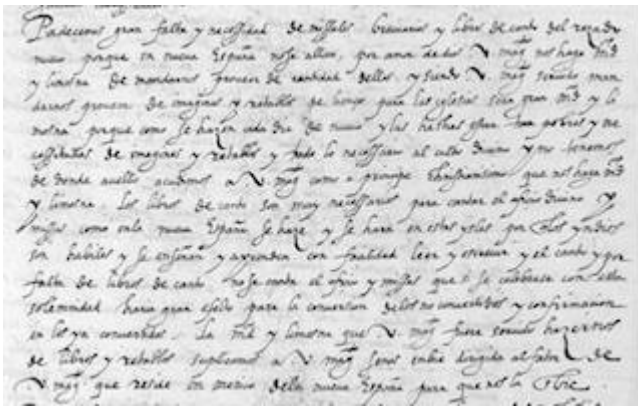 Padecemos gran falta y necessidad de missales breviarios y libros de canto del rezado
nuevo porque en nueva España no se allan, por amor de dios V. magd nos haga md
y limosna de mandarnos proveer de cantidad dellos, y siendo V. magd servido man
darnos proveer de imagines y retablos de lienço para las iglesias sera gran md y li
mosna porque como se hazen cada dia de nuevo y las hechas estan tan pobres y ne
cessitadas de imagines y retablos y todo lo necessario al culto divino y no tenemos
de donde avello acudimos a V. magd como a principe christianissimo que nos haga md
y limosna. Los libros de canto son muy necessarios para cantar el officio divino y
missas como en la nueva España se haze y se hara en estas yslas por q los yndios
son habiles y se enseñan y aprenden con facilidad leer y escrevir y el canto y por
falta de libros de canto no se canta el officio y missas que si se celebrase con esta
solemnidad haria gran efecto para la conversion de los no convertidos y confirmacion
en los ya convertidos. La md y limosna que V. magd fuere servido hazernos
de libros y retablos suplicamos a V. magd se nos enbie dirigida al fator de
V. magd que reside en mexico de la nueva España para que nos la enbie.